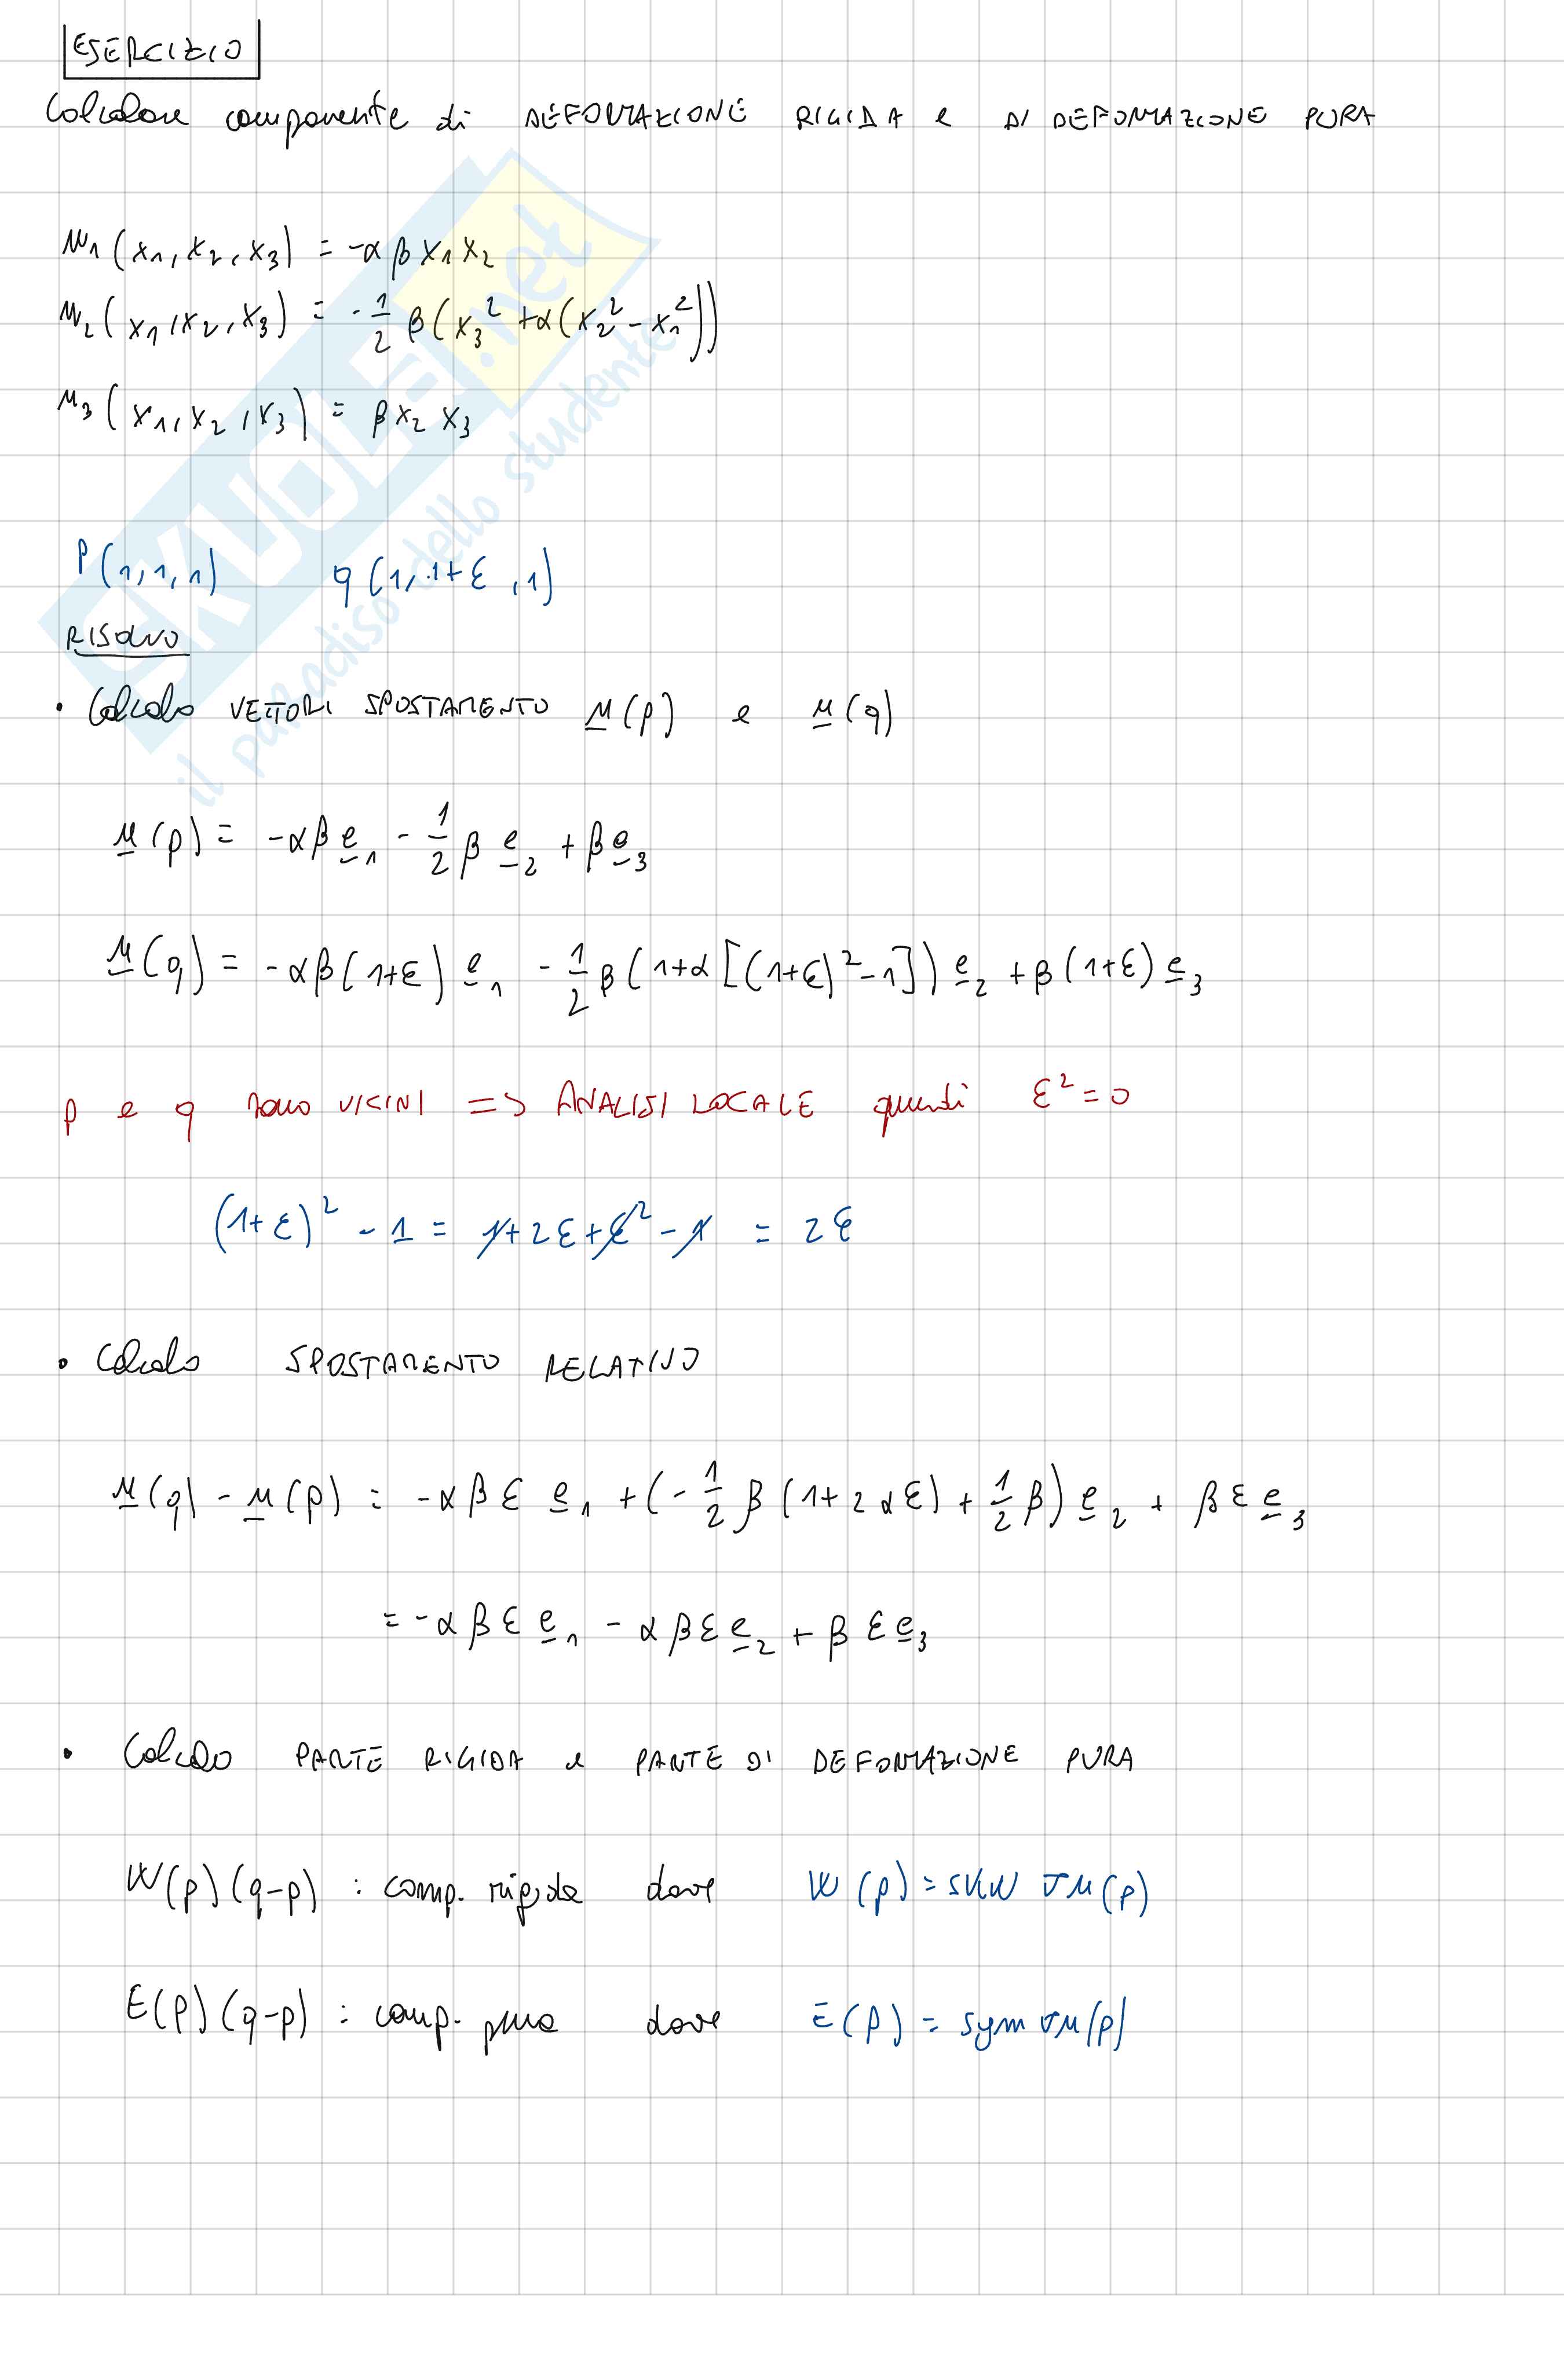 ESERCIZIO
Calcolare componente di DEFORMAZIONE RIGIDA e DI DEFORMAZIONE PURA
u₁(x₁, x₂, x₃) = -αβx₁x₂
u₂(x₁, x₂, x₃) = -1/2 β(x₃² + α(x₂² - x₁²))
u₃(x₁, x₂, x₃) = βx₂x₃
P(1, 1, 1) q(1, 1+ε, 1)
RISOLVO
• Calcolo VETTORI SPOSTAMENTO u(p) e u(q)
u(p) = -αβ e₁ - 1/2 β e₂ + β e₃
u(q) = -αβ(1+ε) e₁ - 1/2 β(1+α[(1+ε)²-1]) e₂ + β(1+ε) e₃
p e q sono VICINI => ANALISI LOCALE quindi ε² = 0
(1+ε)² - 1 = 1+2ε+ε² - 1 = 2ε
• Calcolo SPOSTAMENTO RELATIVO
u(q) - u(p) = -αβε e₁ + (-1/2 β(1+2αε) + 1/2 β) e₂ + βε e₃
= -αβε e₁ - αβε e₂ + βε e₃
• Calcolo PARTE RIGIDA e PARTE DI DEFORMAZIONE PURA
W(p)(q-p) : comp. rigida dove W(p) = skw ∇u(p)
E(p)(q-p) : comp. pura dove E(p) = sym ∇u(p)
SKUOLA.net
il paradiso dello studente